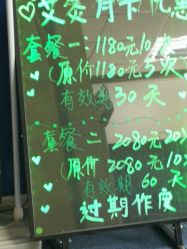 艾灸月卡优惠
套餐一:1180元10次
(原价1180元5次
有效期30天
套餐二 2080元20
(原价 2080元10
有效期 60天
过期作废